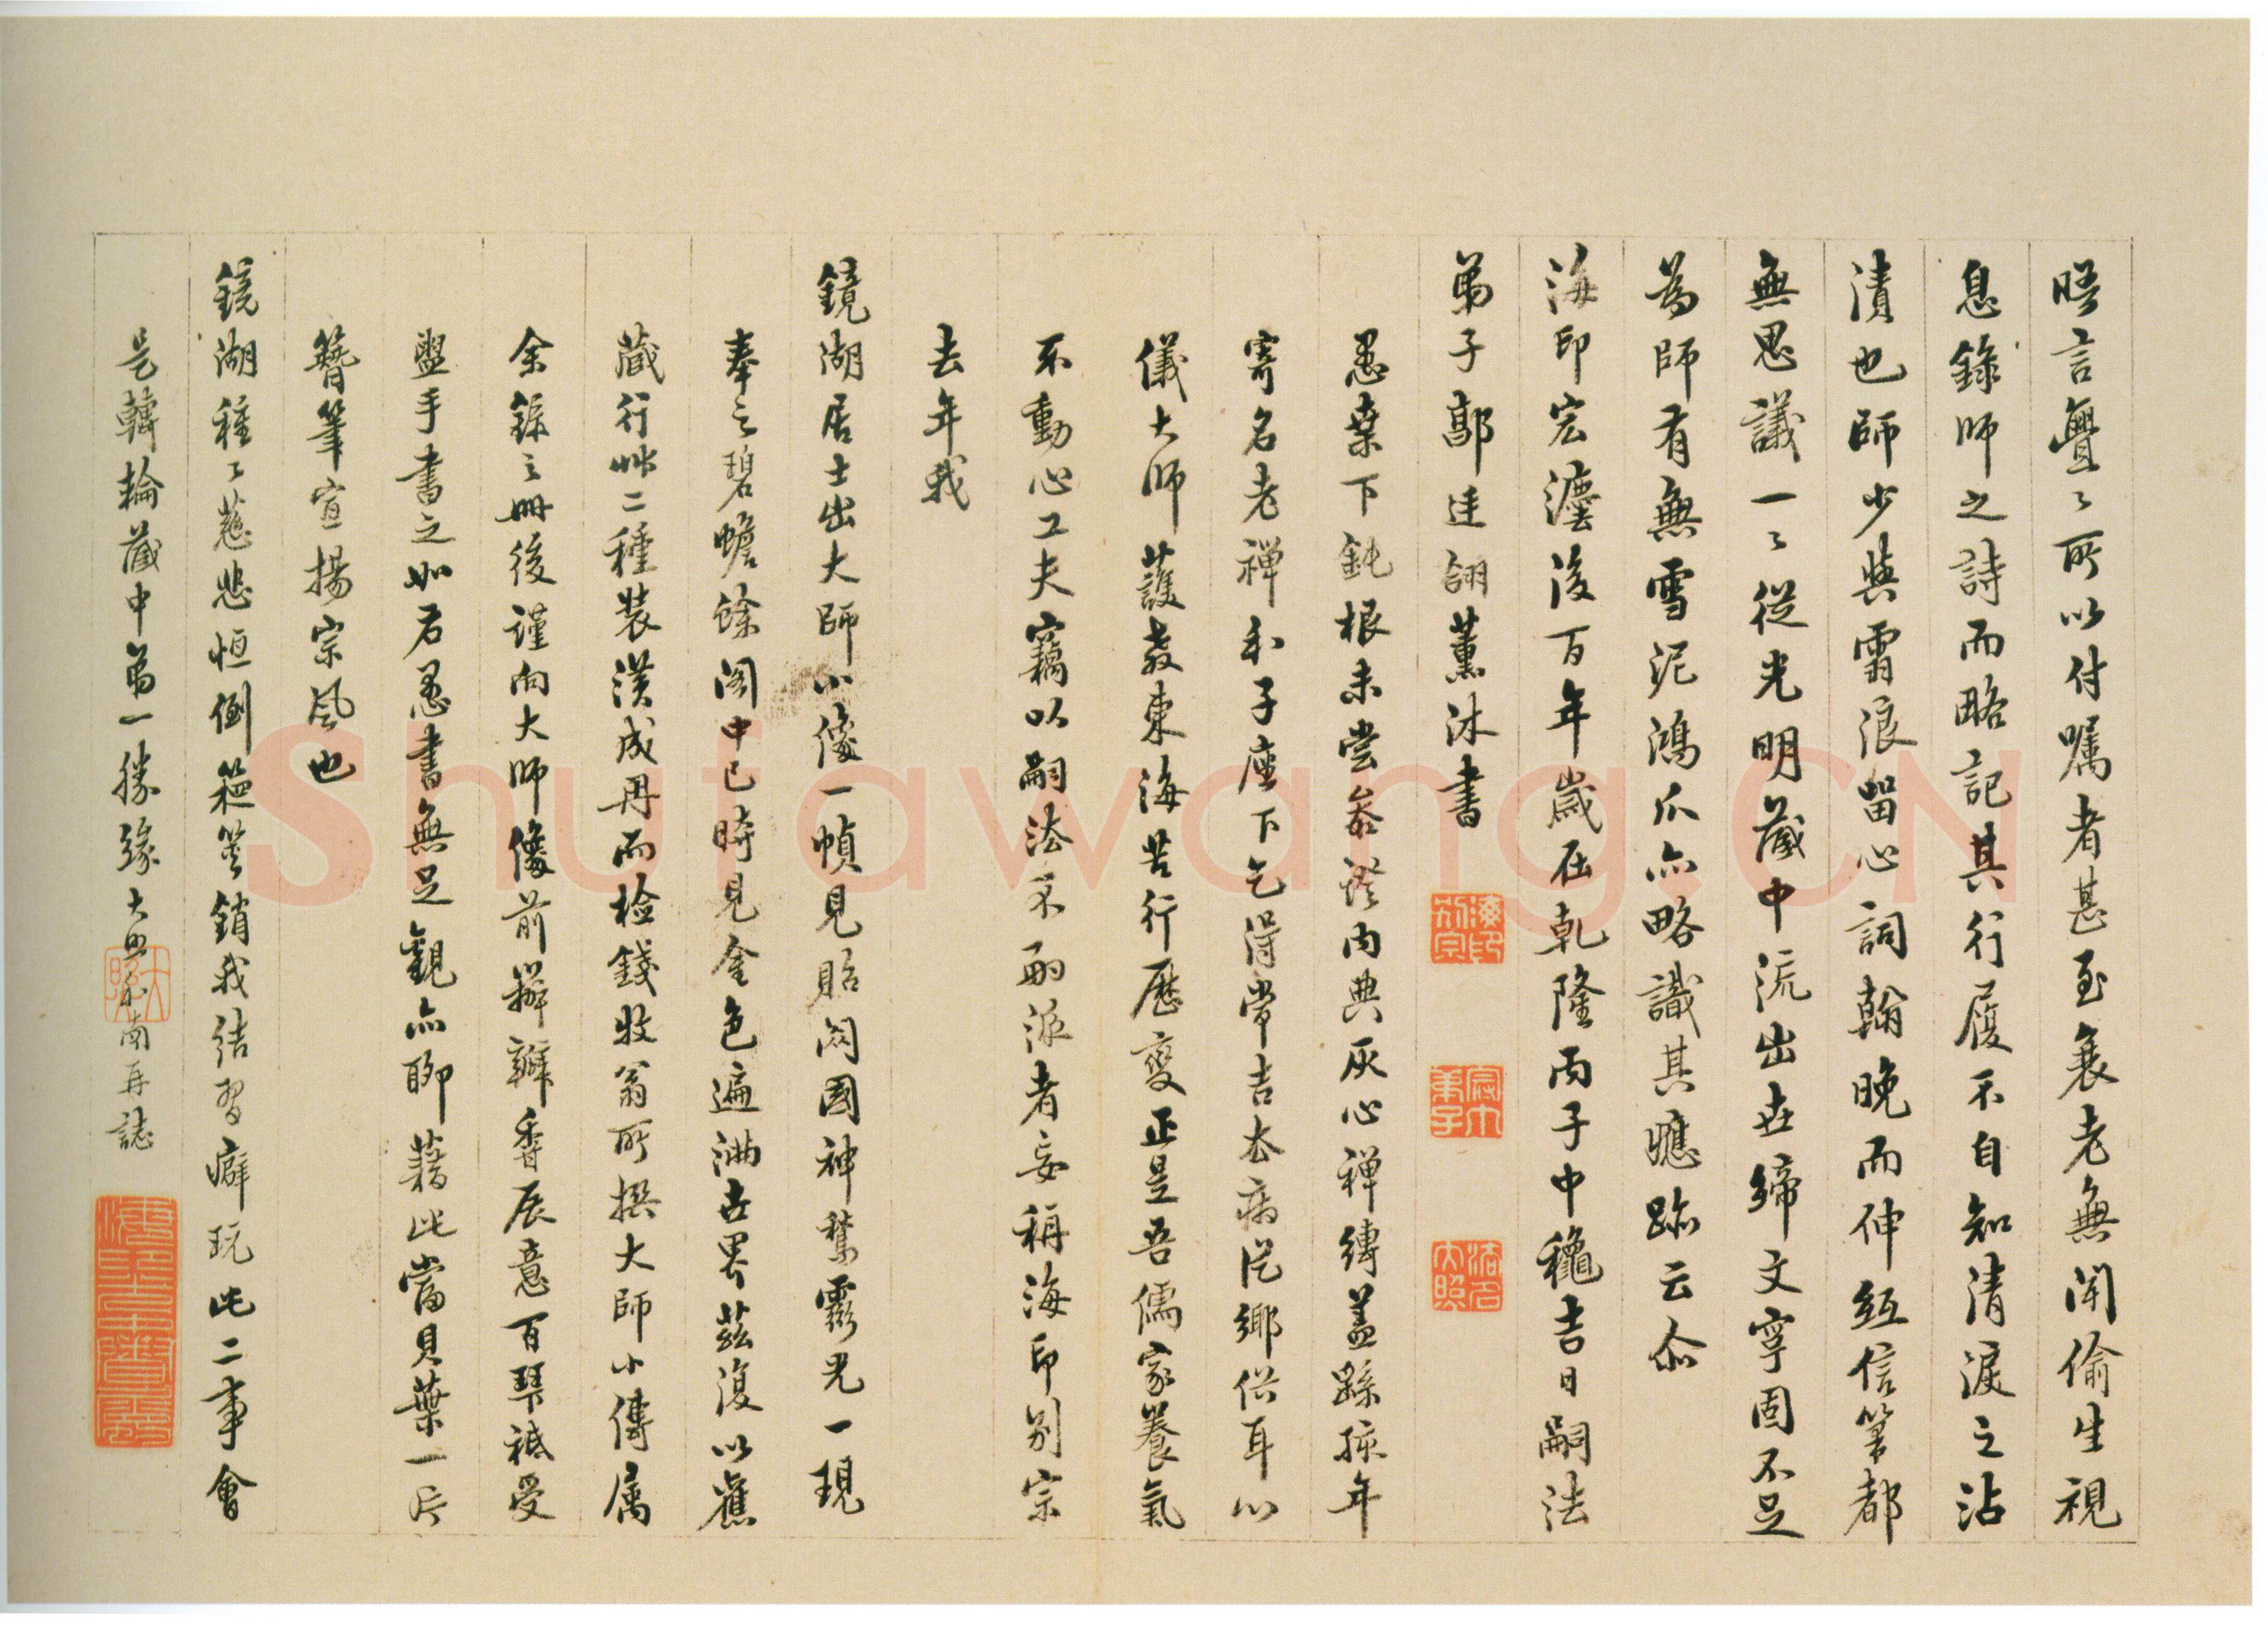 晤言亹〻所以付囑者甚至衰老無聞偷生視
息錄師之詩而略記其行履不自知清淚之沾
漬也師少與雷浪留心詞翰晚而伸紙信筆都
無思議一〻從光明藏中流出在締文字固不足
為師有無雪泥鴻爪亦略識其應跡云尒
海印宏灋後百年歲在乾隆丙子中龝吉日嗣法
弟子鄗迬翖薰沐書
愚葉下鈍根未嘗叅證內典灰心禪縛蓋踰掠年
寄名老禪和子座下乞得常吉杏病従鄉俗耳以
儀大師護教東海苦行歷變正是吾儒家養氣
不動心工夫竊以嗣法不酬派者妄稱海印別宗
去年我
鏡湖居士出大師小像一幀見貽閟國神鰲靈光一現
奉之碧蟾馀阁中已時見金色遍滿世界茲復以舊
藏行艸二種裝潢成再而檢錢牧翁所撰大師小傳属
余錄之冊後謹向大師像前瓣香展意百拜祗受
盥手書之如右愚書無足觀亦聊藉此當貝葉一片
簪筆宣揚宗風也
鏡湖種〻慈悲恒倒箧筪銷我結習癖玩此二事會
是轉輪藏中弟一勝緣大照和南再誌
Shufawang.CN